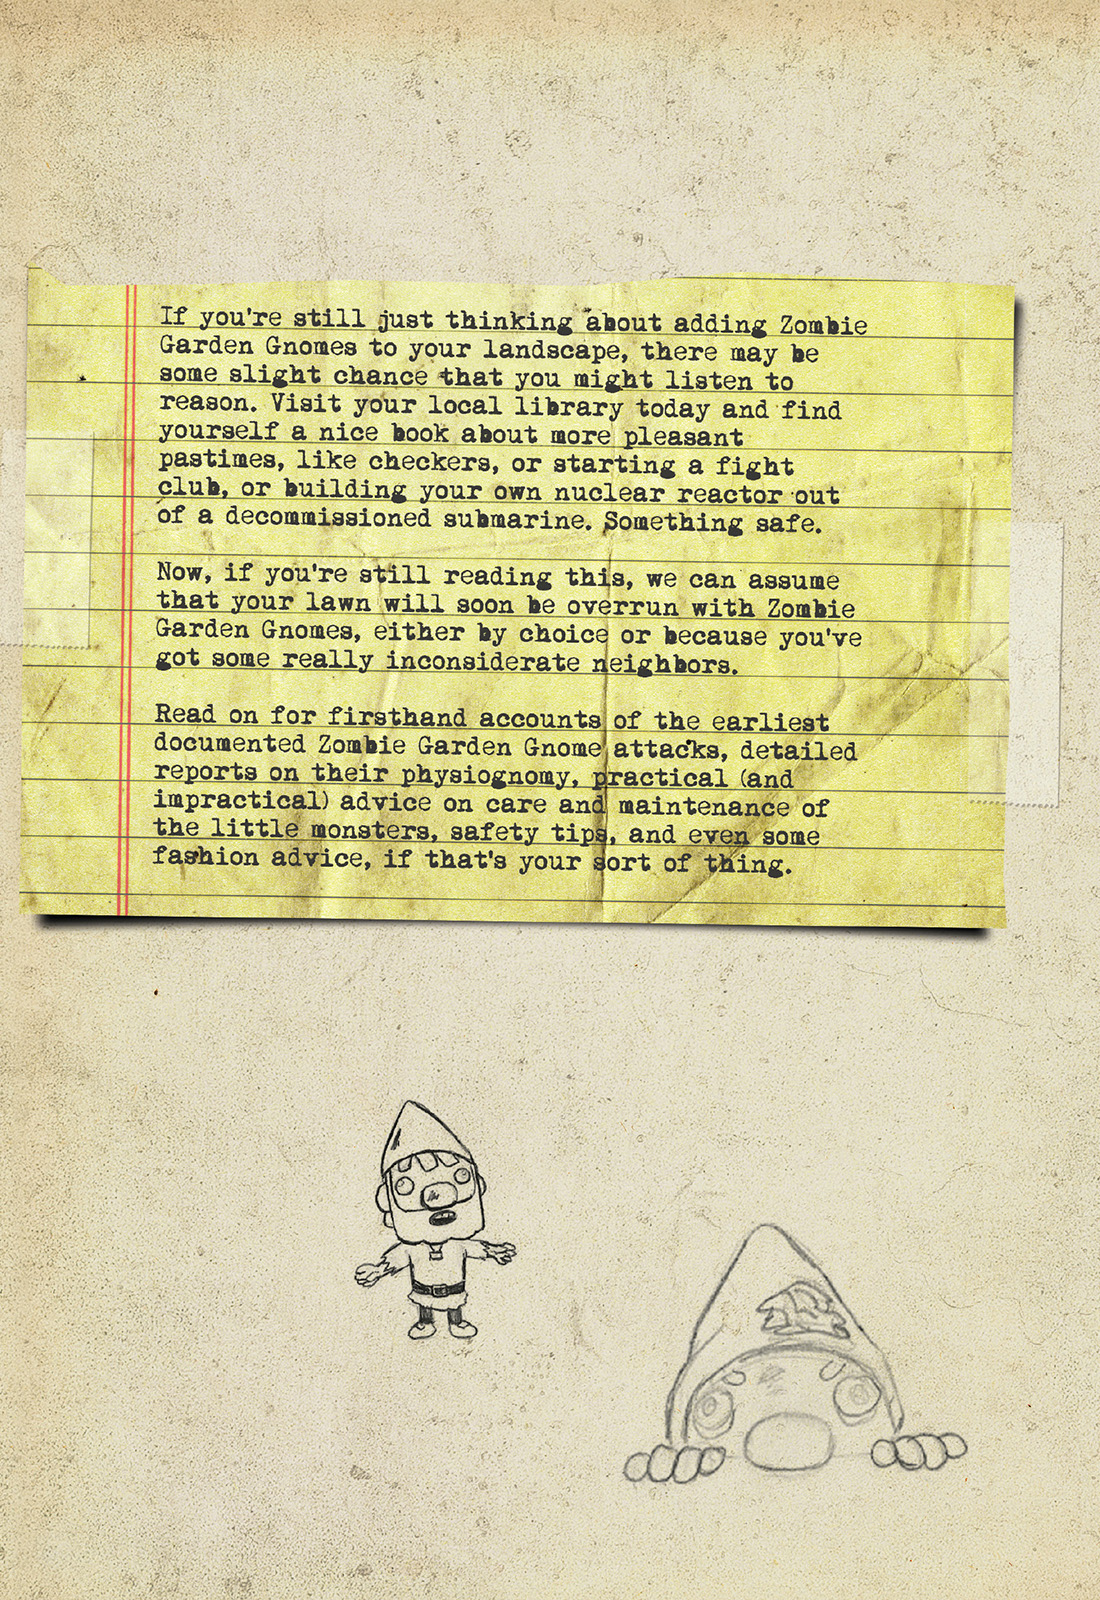 If you're still just thinking about adding Zombie
Garden Gnomes to your landscape, there may be
some slight chance that you might listen to
reason. Visit your local library today and find
yourself a nice book about more pleasant
pastimes, like checkers, or starting a fight
club, or building your own nuclear reactor out
of a decommissioned submarine. Something safe.
Now, if you're still reading this, we can assume
that your lawn will soon be overrun with Zombie
Garden Gnomes, either by choice or because you've
got some really inconsiderate neighbors.
Read on for firsthand accounts of the earliest
documented Zombie Garden Gnome attacks, detailed
reports on their physiognomy, practical (and
impractical) advice on care and maintenance of
the little monsters, safety tips, and even some
fashion advice, if that's your sort of thing.